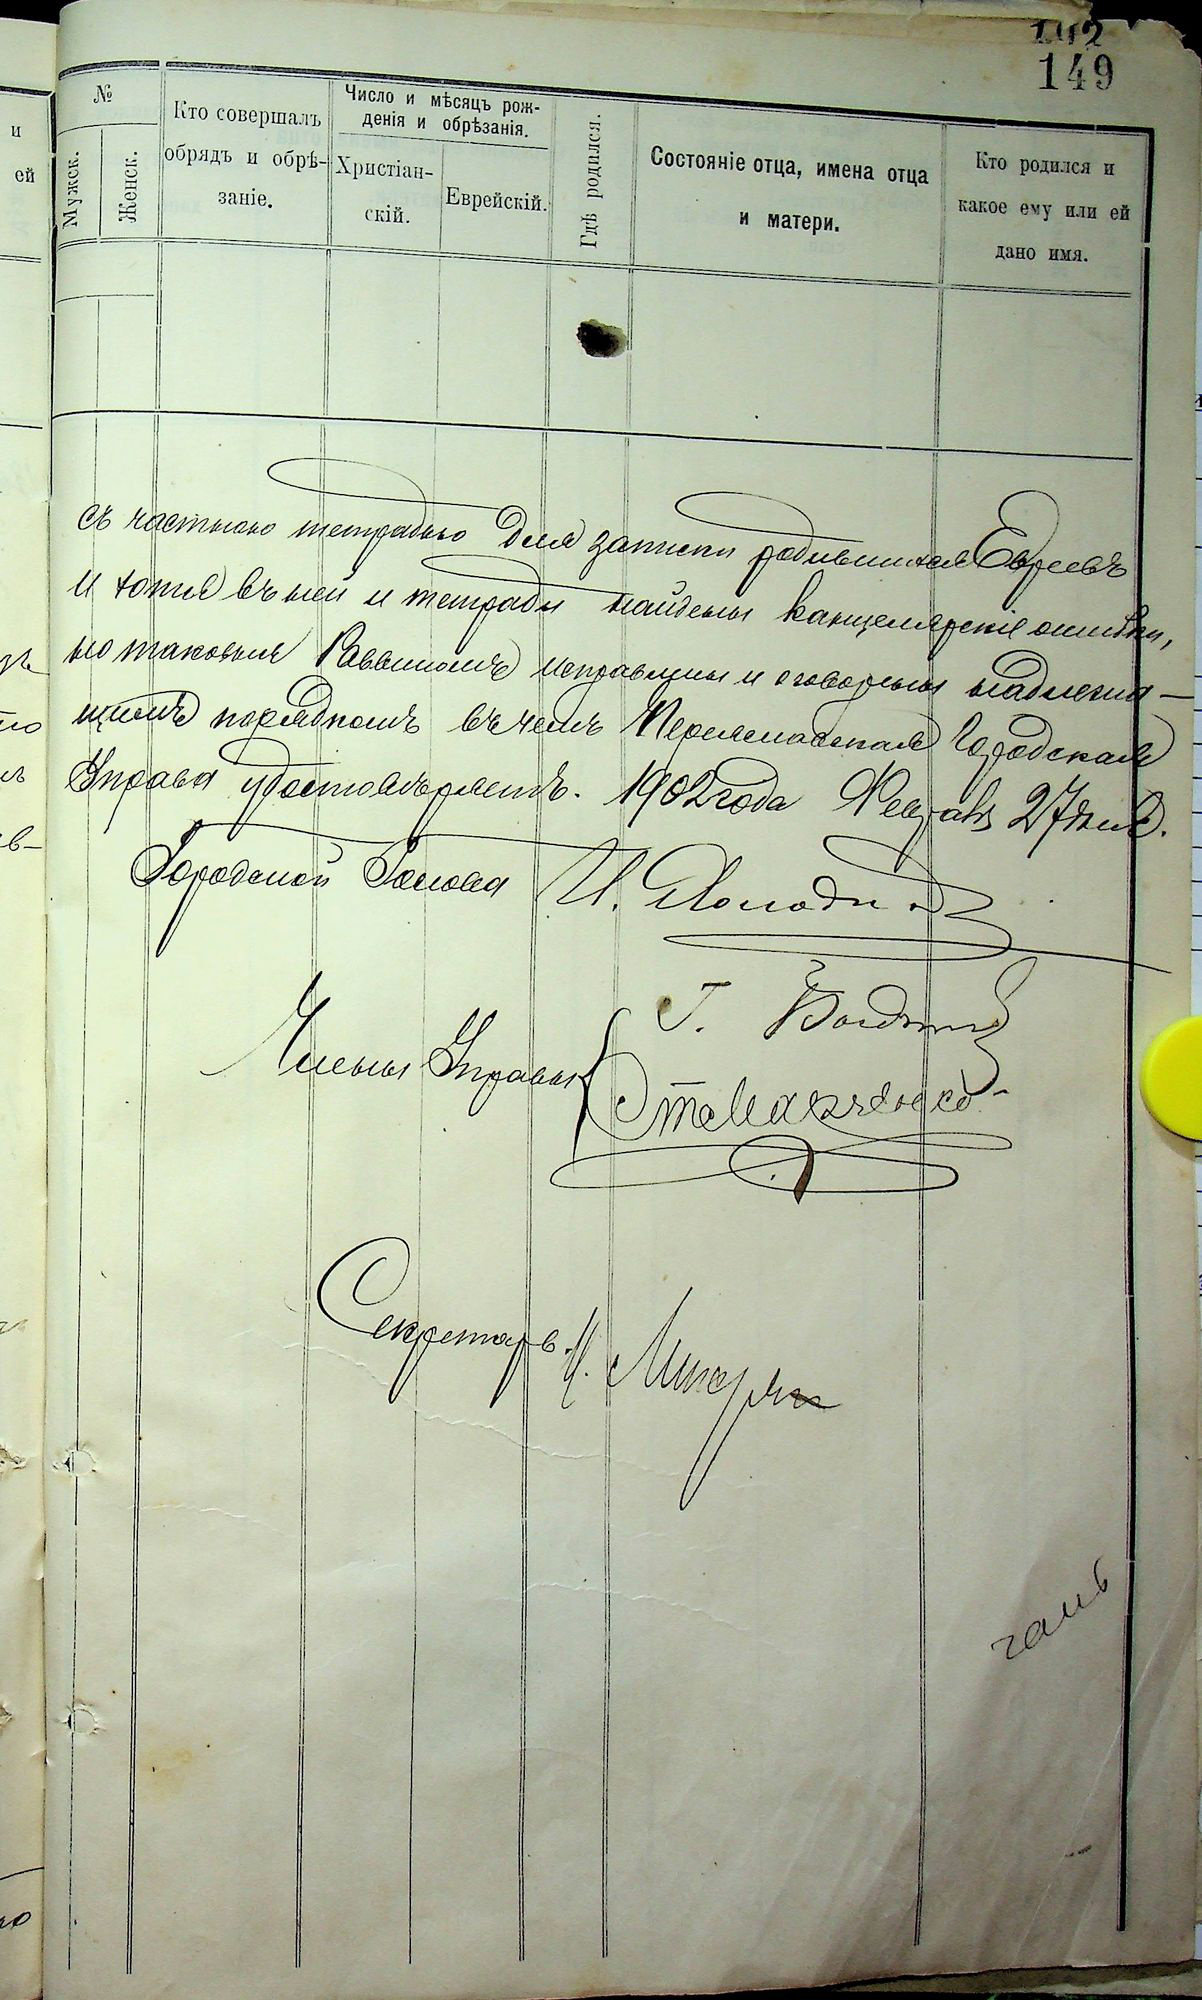 149
№
Мужск.
Женск.
Кто совершалъ
обрядъ и обрѣ-
заніе.
Число и мѣсяцъ рож-
денія и обрѣзанія.
Христіан-
скій.
Еврейскій.
Гдѣ родился.
Состояніе отца, имена отца
и матери.
Кто родился и
какое ему или ей
дано имя.
съ частною тетрадью для записи родившихся Евреевъ
и хотя въ ней и тетради найдены канцелярскіе ошибки,
но таковыя Раввиномъ исправлены и оговорены надлежа-
щимъ порядкомъ въ чемъ Переяславская Городская
Управа удостовѣряетъ. 1902 года 27 дня.
Городской Голова
Члены Управы
Секретарь